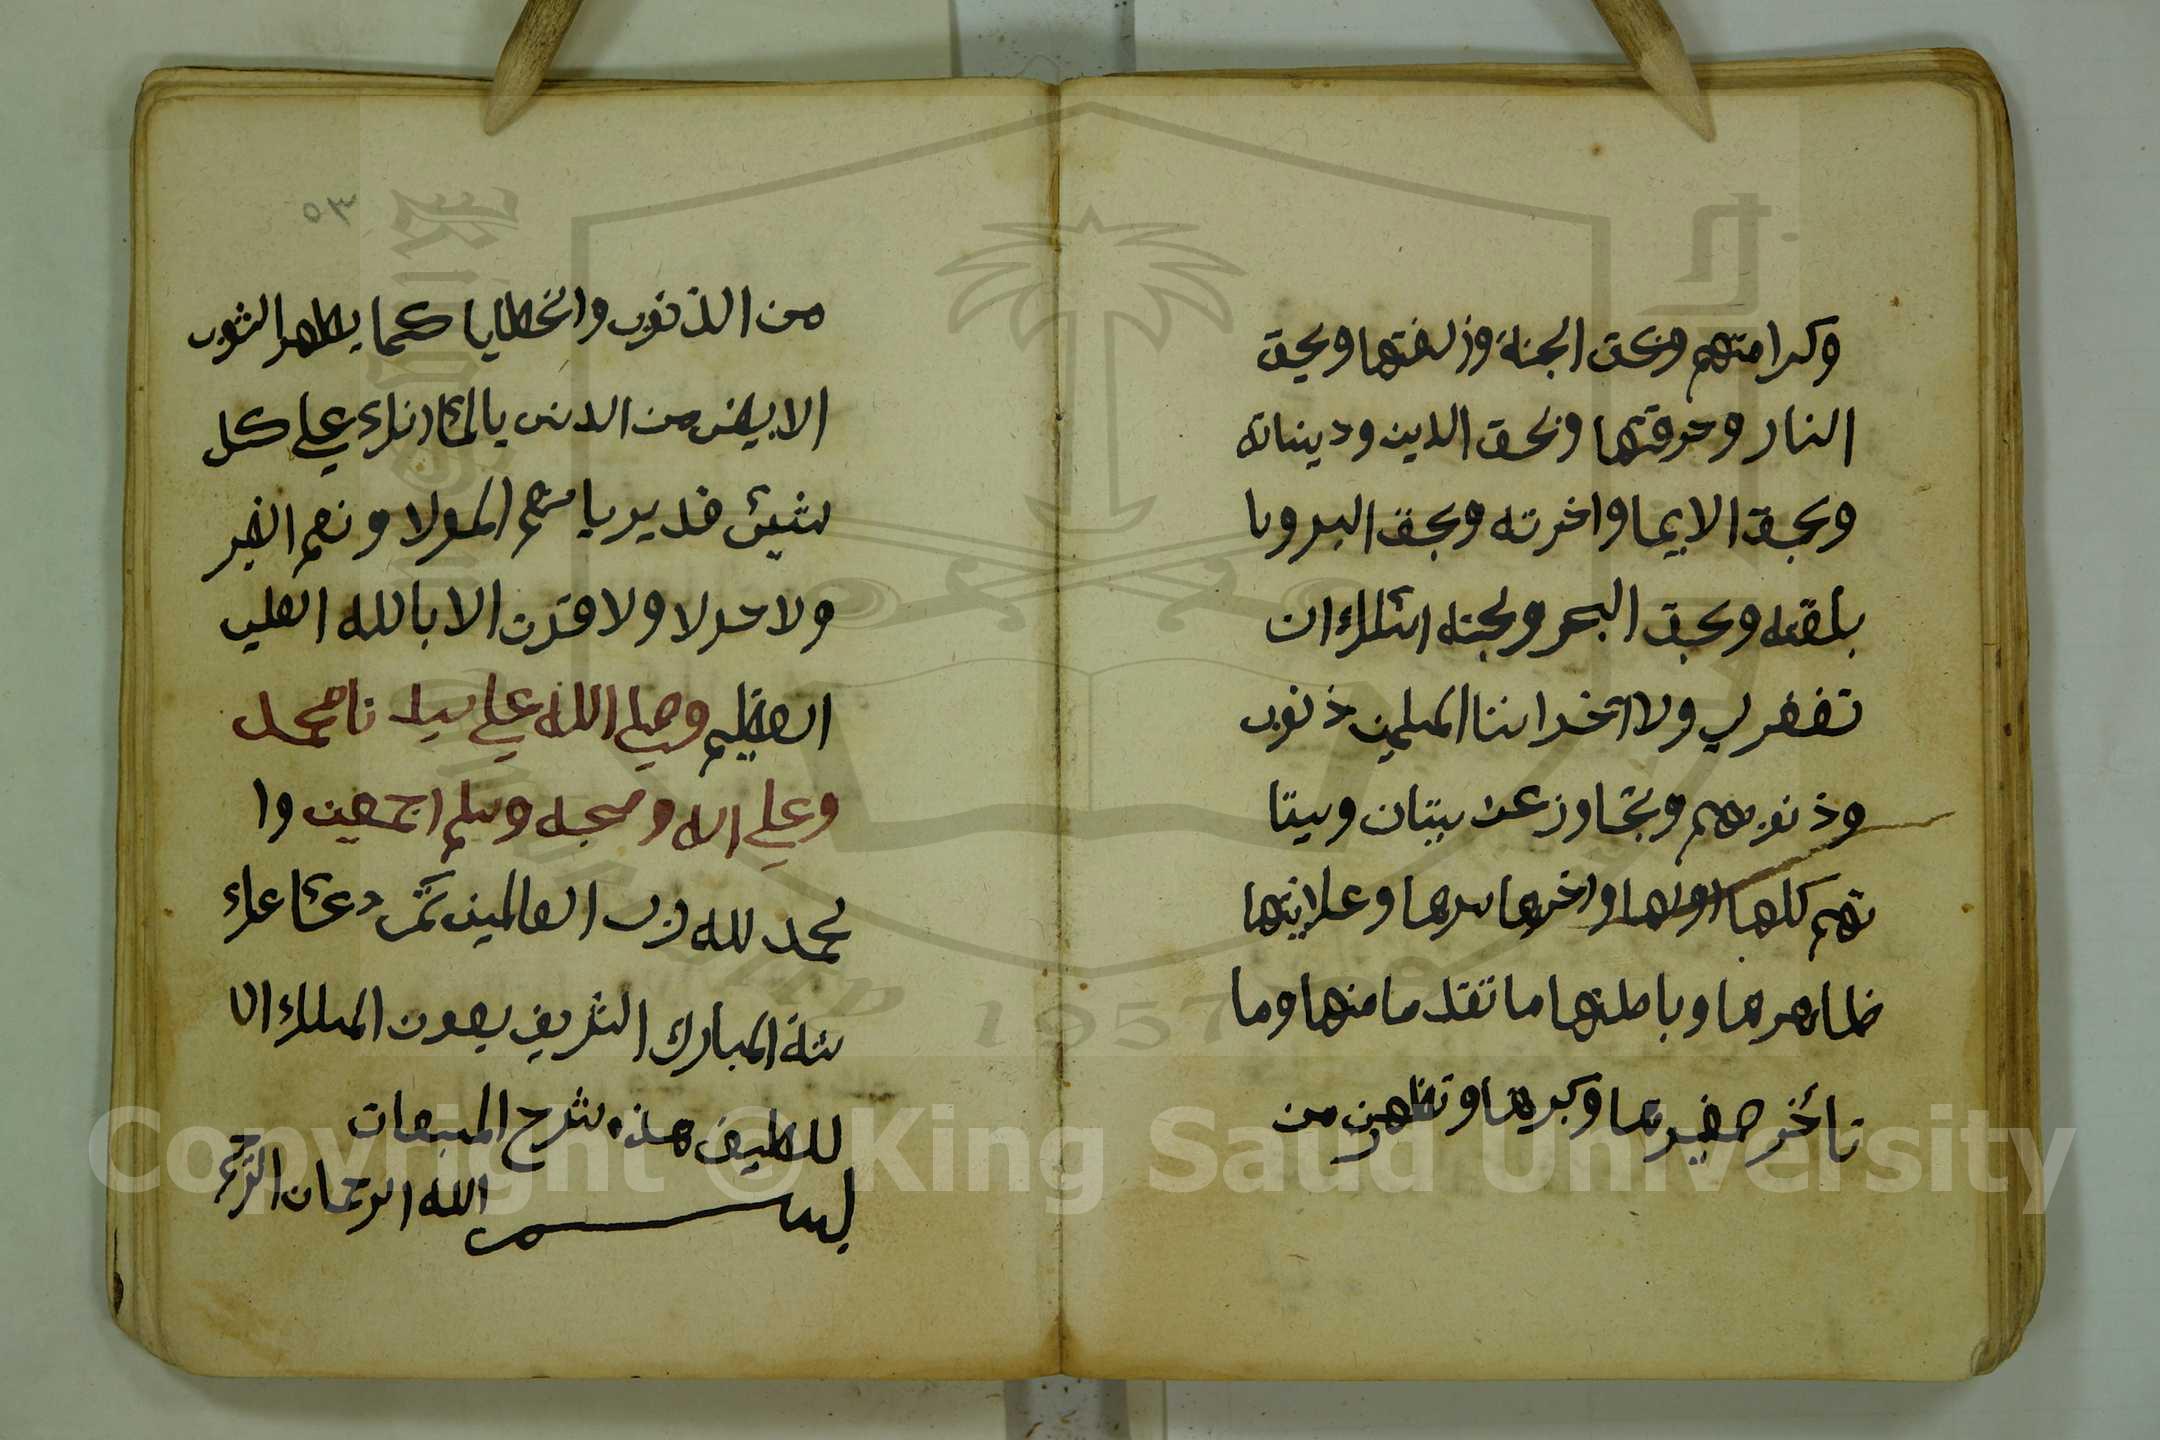 وكرامتهم وبحق الجنة وزلفتها وبحق
النار وحرقتها وبحق الدين وديناته
وبحق الايما واخرته وبحق البر وبا
بلقته وبحق البحر ولجته اسٔلك ان
تغفر لي ولااخراننا المسلمين ذنوب
وذنوبهم وتجاوز عن سيتان وسيتا
تهم كلها اولها واخرها سرها وعلانيتها
ظاهرها وباطنها ما تقد ما منها وما
تاخر صغيرها وكبرها وتطهرن من
٥٣
من الذنوب والخطايا كما يطهر الثوب
الابيض من الدنس يالله انك علي كل
شيئ قدير يا نعم المولا ونعم النصر
ولا حولا ولا قوت الا بالله العلي
العظيم وصلي الله علي سيد نا محمد
وعلي اله وصحبه وسلم اجمعين وا
لحمد لله رب العالمين تمت دعا عا
شة المبارك الشريف بعون الملك ا
للطيف هذه شرح المسبعات
بسم الله الرحمان الرحيم
Copyright © King Saud University
1957